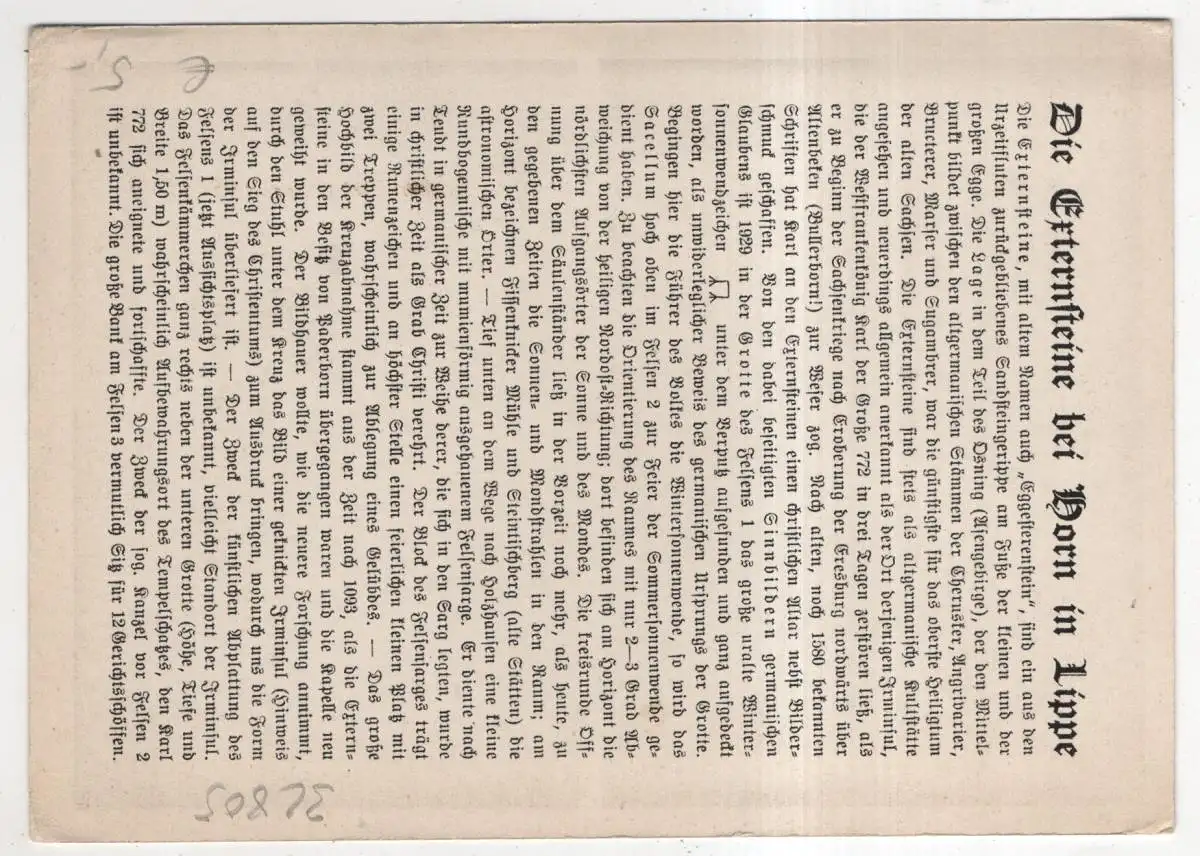 Die Externsteine bei Horn in Lippe
Die Externsteine, mit altem Namen auch „Eggesterenstein“, sind ein aus den
Urzeitfluten zurückgebliebenes Sandsteingerippe am Fuße der kleinen und der
großen Egge. Die Lage in dem Teil des Osning (Asengebirge), der den Mittel-
punkt bildet zwischen den altgermanischen Stämmen der Cherusker, Angrivarier,
Bructerer, Marser und Sugambrer, war die günstigste für das oberste Heiligtum
der alten Sachsen. Die Externsteine sind stets als altgermanische Kultstätte
angesehen und neuerdings allgemein anerkannt als der Ort derjenigen Irminsul,
die der Westfrankenkönig Karl der Große 772 in drei Tagen zerstören ließ, als
er zu Beginn der Sachsenkriege nach Eroberung der Eresburg nordwärts über
Altenbeken (Bullerborn!) zur Weser zog. Nach alten, noch 1580 bekannten
Schriften hat Karl an den Externsteinen einen christlichen Altar nebst Bilder-
schmuck geschaffen. Von den dabei beseitigten Sinnbildern germanischen
Glaubens ist 1929 in der Grotte des Felsens 1 das große uralte Winter-
sonnenwendzeichen unter dem Verputz aufgefunden und ganz aufgedeckt
worden, als unwiderleglicher Beweis des germanischen Ursprungs der Grotte.
Begingen hier die Führer des Volkes die Wintersonnenwende, so wird das
Sacellum hoch oben im Felsen 2 zur Feier der Sommersonnenwende ge-
dient haben. Zu beachten die Orientierung des Raumes mit nur 2—3 Grad Ab-
weichung von der heiligen Nordost-Richtung; dort befinden sich am Horizont die
nördlichsten Aufgangsörter der Sonne und des Mondes. Die kreisrunde Öff-
nung über dem Säulenständer ließ in der Vorzeit noch mehr, als heute, zu
den gegebenen Zeiten die Sonnen- und Mondstrahlen in den Raum; am
Horizont bezeichnen Fissenknicker Mühle und Steintischberg (alte Stätten) die
astronomischen Örter. — Tief unten an dem Wege nach Holzhausen eine kleine
Rundbogennische mit mumienförmig ausgehauenem Felsensarge. Er diente nach
Teudt in germanischer Zeit zur Weihe derer, die sich in den Sarg legten, wurde
in christlicher Zeit als Grab Christi verehrt. Der Block des Felsensarges trägt
einige Runenzeichen und an höchster Stelle einen feierlichen kleinen Platz mit
zwei Treppen, wahrscheinlich zur Ablegung eines Gelübdes. — Das große
Hochbild der Kreuzabnahme stammt aus der Zeit nach 1093, als die Extern-
steine in den Besitz von Paderborn übergegangen waren und die Kapelle neu
geweiht wurde. Der Bildhauer wollte, wie die neuere Forschung annimmt,
durch den Stuhl unter dem Kreuz das Bild einer geknickten Irminsul (Hinweis
auf den Sieg des Christentums) zum Ausdruck bringen, wodurch uns die Form
der Irminsul überliefert ist. — Der Zweck der künstlichen Abplattung des
Felsens 1 (jetzt Aussichtsplatz) ist unbekannt, vielleicht Standort der Irminsul.
Das Felsenkämmerchen ganz rechts neben der unteren Grotte (Höhe, Tiefe und
Breite 1,50 m) wahrscheinlich Aufbewahrungsort des Tempelschatzes, den Karl
772 sich aneignete und fortschaffte. Der Zweck der sog. Kanzel vor Felsen 2
ist unbekannt. Die große Bank am Felsen 3 vermutlich Sitz für 12 Gerichtsschöffen.
32805